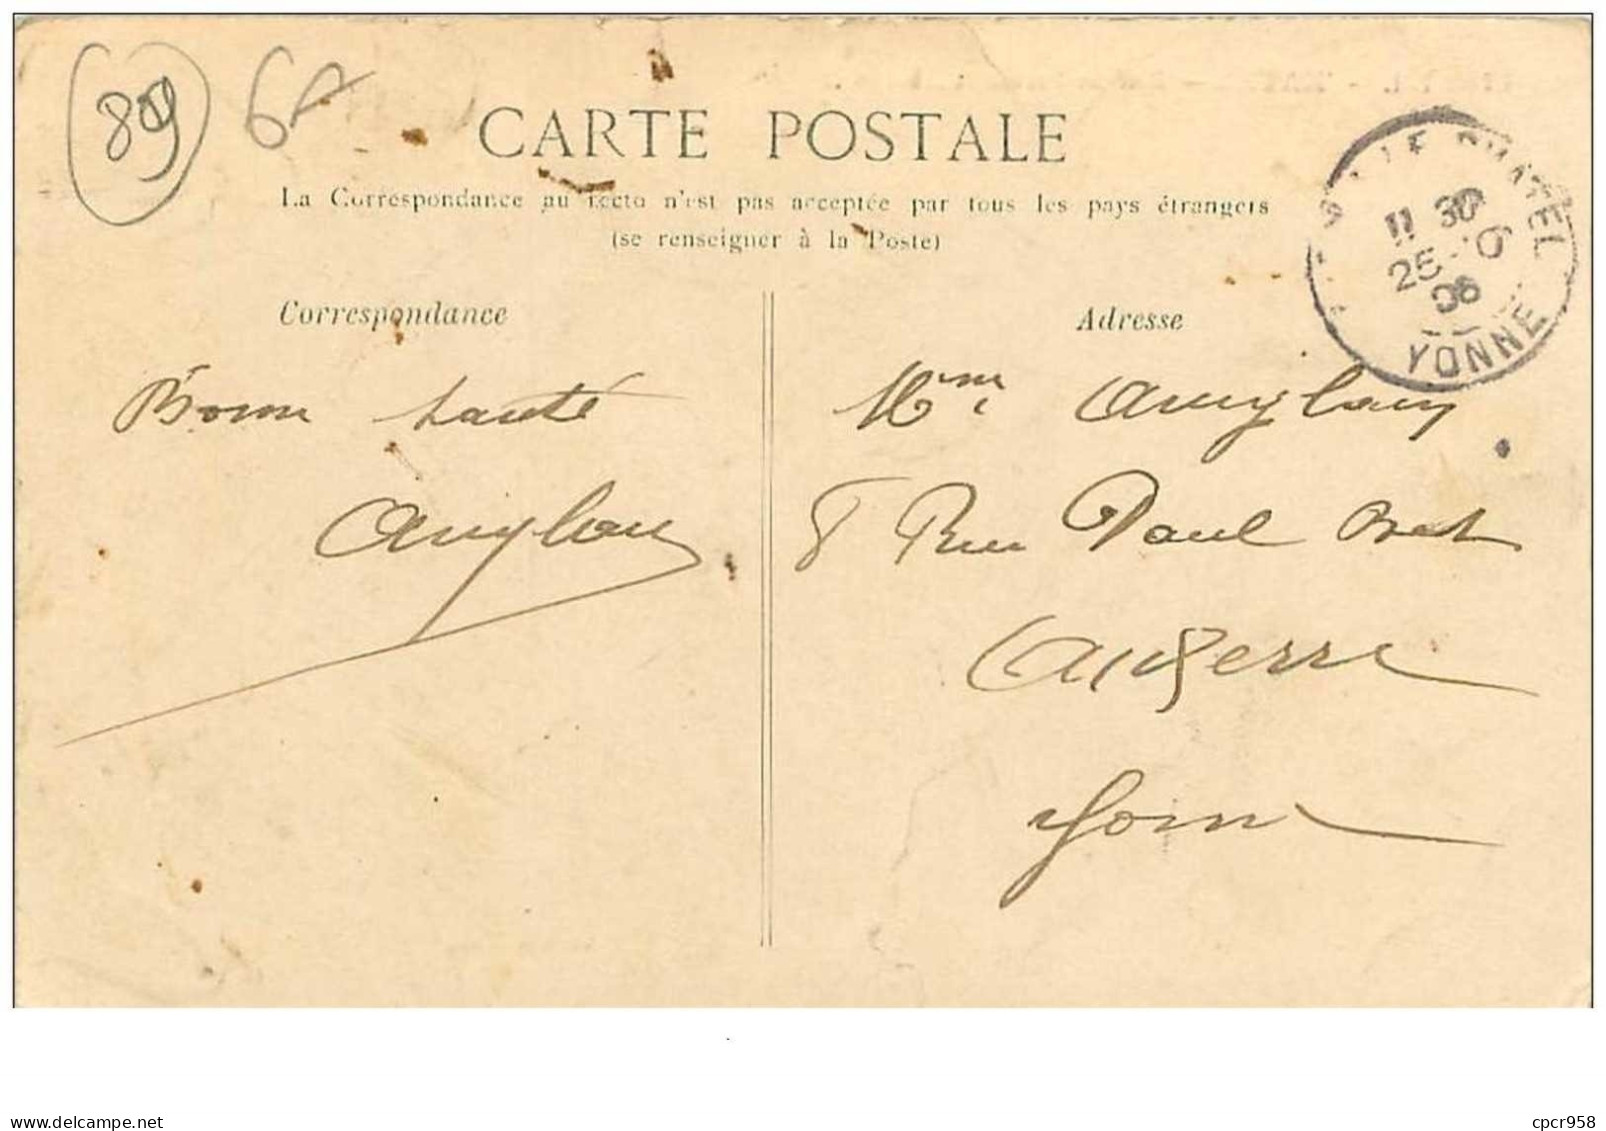 89
CARTE POSTALE
La Correspondance au recto n'est pas acceptée par tous les pays étrangers
(se renseigner à la Poste)
LE CHATEL
11 30
25 -6
06
YONNE
Correspondance
Adresse
Bonne santé
Mme
8 Rue Paul Bert
Auxerre
Yonne
delcampe.net
cpcr958